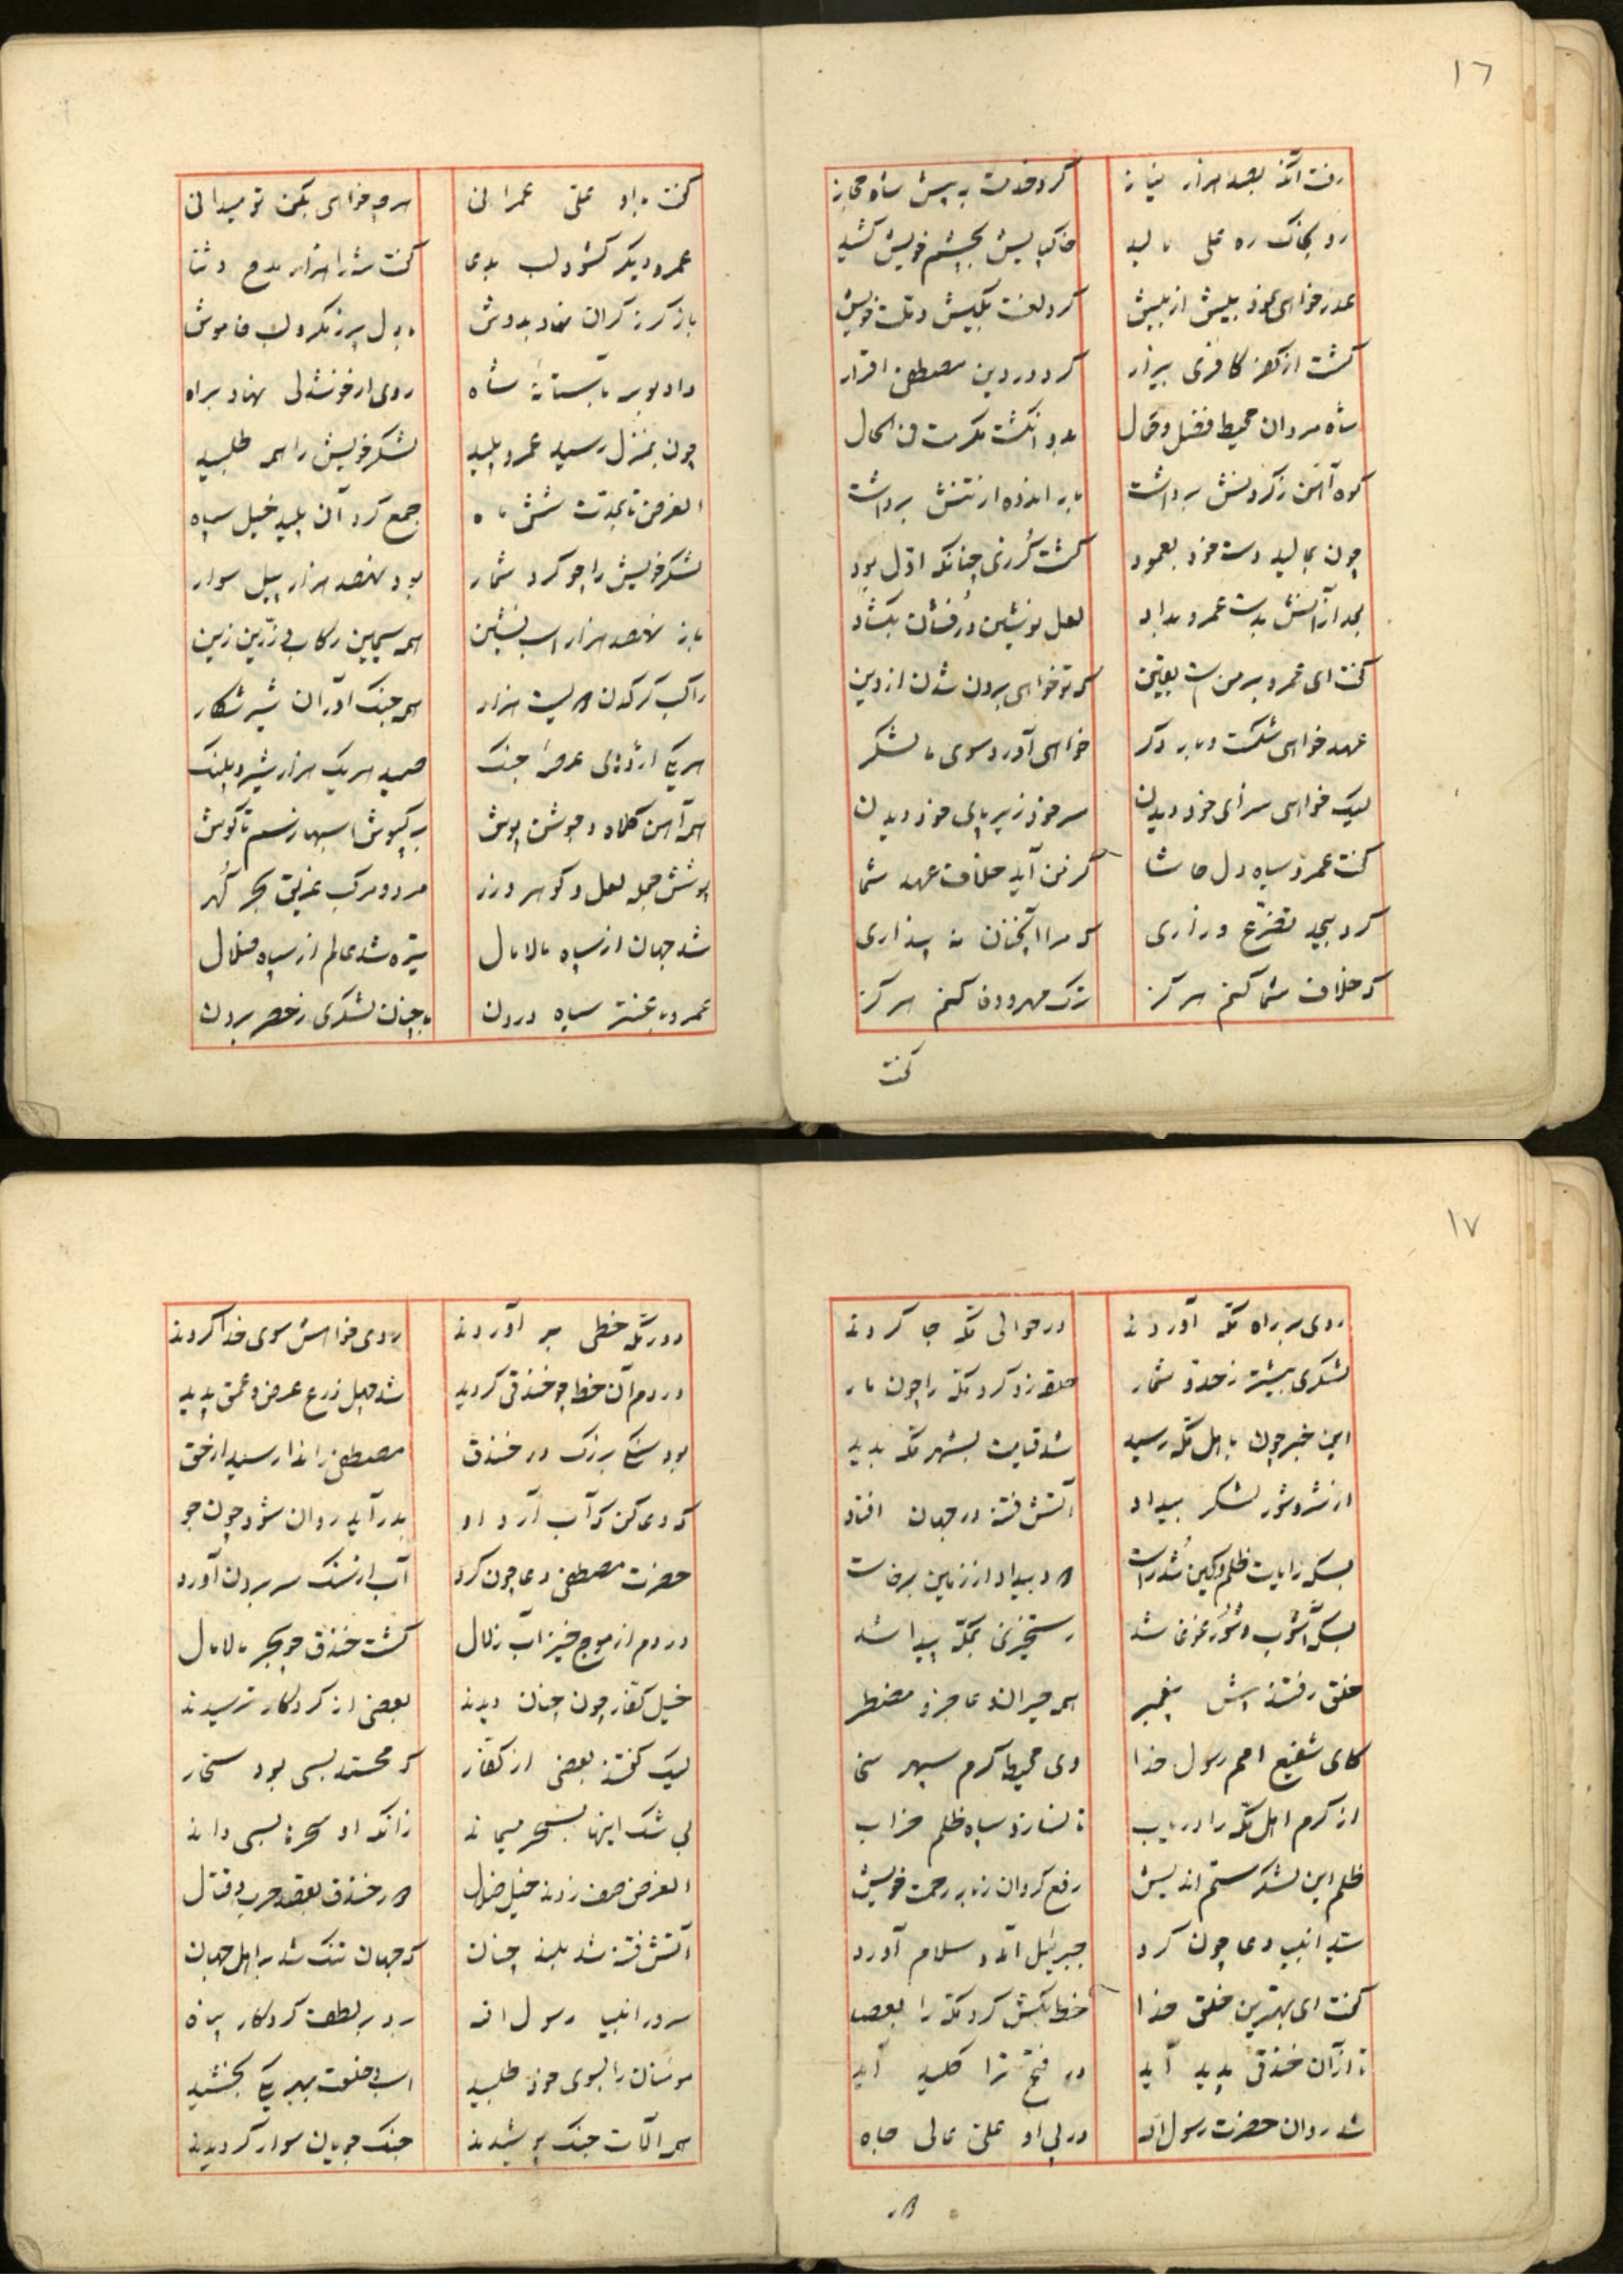 ١٦
رفت آنکه بصد هزار نیاز کرد خدمت به پیش شاه حجاز
رو بخاک ره علی مالید خاکپایش بچشم خویش کشید
عذر خواهی نمود بیش از بیش کرد لعنت بکیش و ملت خویش
گشت از کفر کافری بیزار کرد در دین مصطفی اقرار
شاه مردان محیط فضل و کمال بدو انگشت مکرمت فی الحال
کوه آهن ز گردنش برداشت بار اندوه از تنش برداشت
چون بمالید دست خود بعمود گشت گرزی چنانکه اول بود
بعد از آنش بدست عمرو بداد لعل نوشین درفشان بکشاد
گفت ای عمرو بر من است یقین که تو خواهی برون شدن از دین
عهد خواهی شکست و بار دگر خواهی آورد سوی ما لشکر
لیک خواهی سزای خود دیدن سر خود زیر پای خود دیدن
گفت عمرو سیاه دل حاشا کز من آید خلاف عهد شما
کرد بیحد تضرع و زاری که مرا آنچنان نه پنداری
که خلاف شما کنم هرگز ترک مهر و وفا کنم هرگز
گفت
گفت با او علی عمرانی هرچه خواهی بکن تو میدانی
عمرو دیگر گشود لب بدعا گفت شه را هزار مدح و ثنا
باز گرز گران نهاد بدوش با دل پر ز مکر و لب خاموش
داد بوسه بآستانهٔ شاه روی از خوشدلی نهاد براه
چون بمنزل رسید عمرو پلید لشکر خویش را همه طلبید
الغرض تا بمدت شش ماه جمع کرد آن پلید خیل سپاه
لشکر خویش را چو کرد شمار بود نهصد هزار پیل سوار
باز نهصد هزار اسب نشین همه سیمین رکاب و زرین زین
راکب کرکدن دویست هزار همه جنگ آوران شیر شکار
هر یکی اژدهای عرصهٔ جنگ صید هر یک هزار شیر و پلنگ
همه آهن کلاه و جوشن پوش
پوشش جمله لعل و گوهر و زر مرد و مرکب غریق بحر گهر
شد جهان از سپاه مالامال تیره شد عالم از سپاه ضلال
عمرو با عنتر سیاه درون با چنان لشکری ز حصر برون
١٧
روی بر راه مکه آوردند در حوالی مکه جا کردند
لشکری بیشتر ز حد و شمار حلقه زد گرد مکه را چون مار
این خبر چون باهل مکه رسید شد قیامت بشهر مکه پدید
از شر و شور لشکر بیداد آتش فتنه در جهان افتاد
بسکه رایات ظلم و کین شد راست داد بیداد از زمین برخاست
بسکه آشوب و شور و غوغا شد رستخیزی بمکه پیدا شد
خلق رفتند پیش پیغمبر همه حیران و عاجز و مضطر
کای شفیع امم رسول خدا وی محیط کرم سپهر سخا
از کرم اهل مکه را دریاب تا نسازد سپاه ظلم خراب
ظلم این لشکر ستم اندیش رفع گردان ز ابر رحمت خویش
سید انبیا دعا چون کرد جبرئیل آمد و سلام آورد
گفت ای بهترین خلق خدا خط بکش گرد مکه را بعصا
تا از آن خندقی پدید آید در فتح ترا کلید آید
شد روان حضرت رسول اله در پی او علی عالی جاه
در
دور مکه خطی بر آوردند روی خواهش سوی خدا کردند
در دم آن خط چو خندقی گردید شد چهل ذرع عرض و عمق پدید
بود سنگی بزرگ در خندق مصطفی را ندا رسید از حق
که دعا کن که آب آرد او بدر آید روان شود چون جو
حضرت مصطفی دعا چون کرد آب از سنگ سر برون آورد
در دم از موج خیز آب زلال گشت خندق چو بحر مالامال
خیل کفار چون چنان دیدند بعضی از کردگار ترسیدند
لیک گفتند بعضی از کفار که محمد بسی بود سحار
بی شک اینها بسحر میماند زانکه او سحرها بسی داند
الغرض صف زدند خیل ضلال دور خندق بقصد حرب و قتال
آتش فتنه شد بلند چنان که جهان تنگ شد بر اهل جهان
سرور انبیا رسول اله برد بر لطف کردگار پناه
مومنان را بسوی خود طلبید اسب و خلعت بهر یکی بخشید
همه آلات جنگ پوشیدند جنگ جویان سوار گردیدند